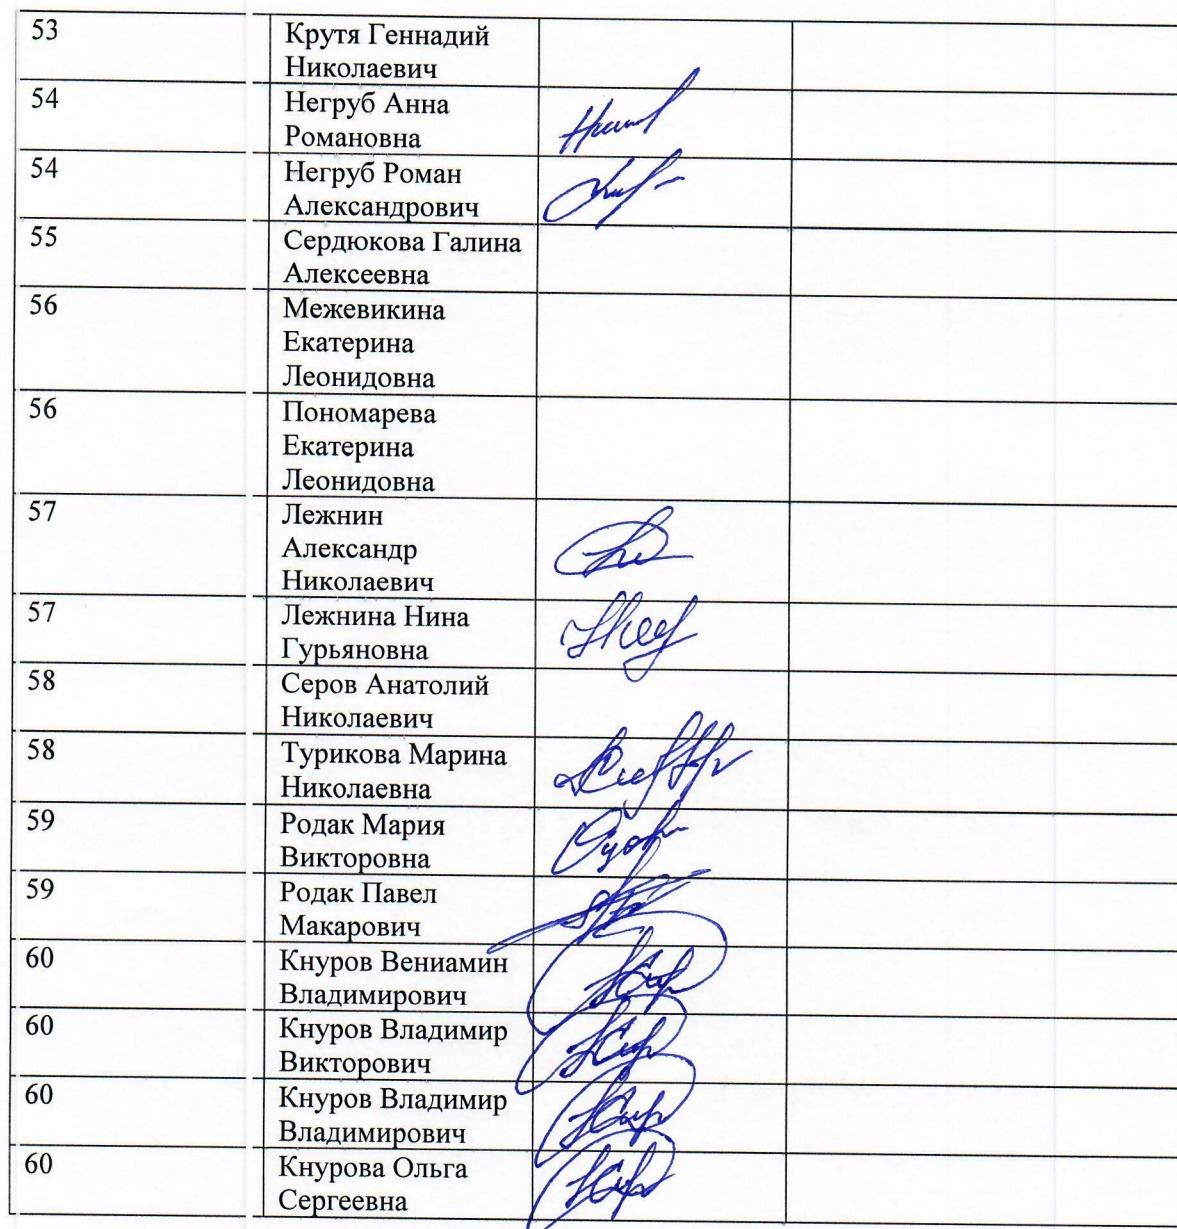 53 Крутя Геннадий
Николаевич
54 Негруб Анна
Романовна
54 Негруб Роман
Александрович
55 Сердюкова Галина
Алексеевна
56 Межевикина
Екатерина
Леонидовна
56 Пономарева
Екатерина
Леонидовна
57 Лежнин
Александр
Николаевич
57 Лежнина Нина
Гурьяновна
58 Серов Анатолий
Николаевич
58 Турикова Марина
Николаевна
59 Родак Мария
Викторовна
59 Родак Павел
Макарович
60 Кнуров Вениамин
Владимирович
60 Кнуров Владимир
Викторович
60 Кнуров Владимир
Владимирович
60 Кнурова Ольга
Сергеевна